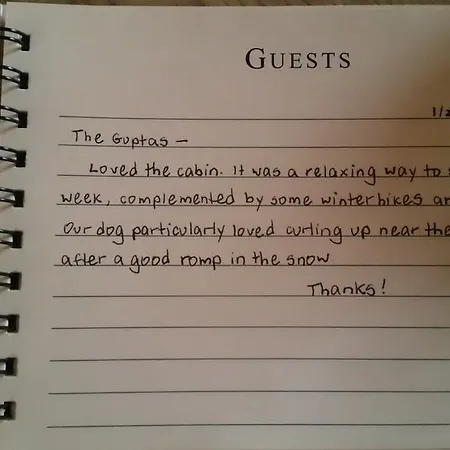 GUESTS
1/2
The Guptas —
Loved the cabin. It was a relaxing way to
week, complemented by some winter hikes
Our dog particularly loved curling up near the
after a good romp in the snow
Thanks!